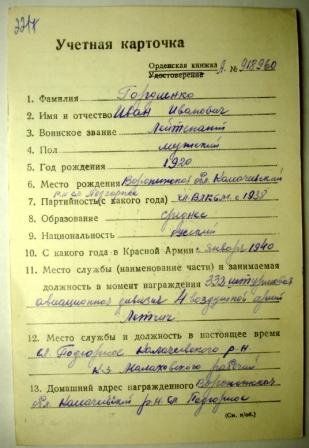 221х
Учетная карточка
Орденская книжка
Удостоверение А. № 918960
1. Фамилия Гордиенко
2. Имя и отчество Иван Иванович
3. Воинское звание Лейтенант
4. Пол мужской
5. Год рождения 1920
6. Место рождения Воронежской обл. Калачевский
р-н сл. Подгорное
7. Партийность (с какого года) чл. ВЛКСМ с 1938
8. Образование среднее
9. Национальность русский
10. С какого года в Красной Армии с января 1940
11. Место службы (наименование части) и занимаемая
должность в момент награждения 332 штурмовая
авиационная дивизия 4 воздушной армии
Летчик
12. Место службы и должность в настоящее время
сл. Подгорное Калачеевского р-н
к-з Малаховского рабочий
13. Домашний адрес награжденного Воронежская
обл. Калачевский р-н сл. Подгорное
(См. н/об.)